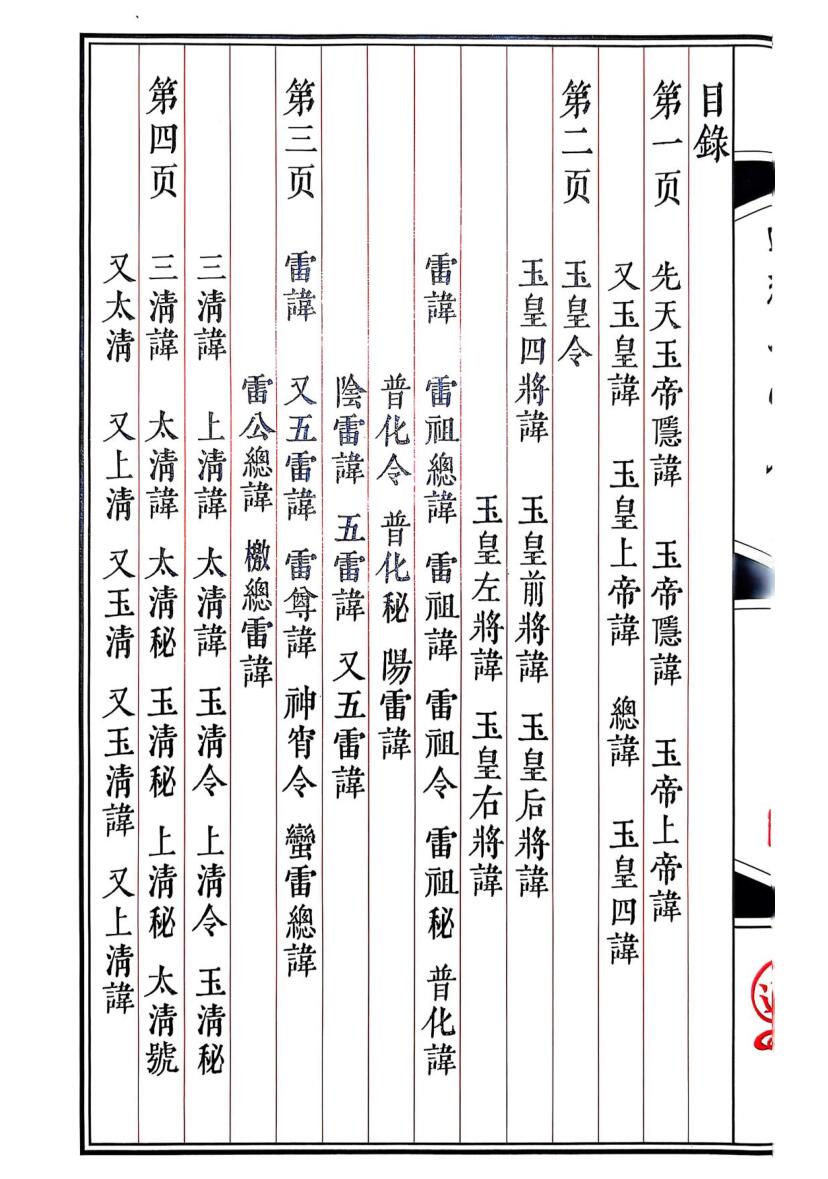 目錄
第一页 先天玉帝隱諱 玉帝隱諱 玉帝上帝諱
又玉皇諱 玉皇上帝諱 總諱 玉皇四諱
第二页 玉皇令
玉皇四將諱 玉皇前將諱 玉皇后將諱
玉皇左將諱 玉皇右將諱
雷諱 雷祖總諱 雷祖諱 雷祖令 雷祖秘 普化諱
普化令 普化秘 陽雷諱
陰雷諱 五雷諱 又五雷諱
第三页 雷諱 又五雷諱 雷尊諱 神霄令 蠻雷總諱
雷公總諱 檄總雷諱
三淸諱 上淸諱 太淸諱 玉淸令 上淸令 玉淸秘
第四页 三淸諱 太淸諱 太淸秘 玉淸秘 上淸秘 太淸號
又太淸 又上淸 又玉淸 又玉淸諱 又上淸諱